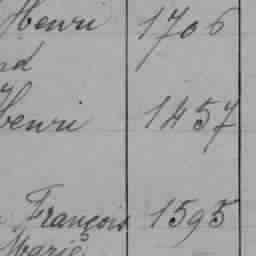 Henri 1706
nd
Henri 1457
François 1595
Marie